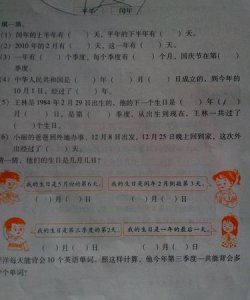 平年 闰年
填一填。
(1) 闰年的上半年有( )天，平年的下半年有( )天。
(2) 2010年的2月有( )天，这一年有( )天。
(3) 一年有( )个季度，每个季度有( )个月，国庆节在第( )
季度。
(4) 中华人民共和国是( )年( )月( )日成立的，到今年的
10月1日，经过了( )年。
(5) 王林是1984年2月29日出生的，他的下一个生日是( )年( )
月( )日，是第( )季度，从出生到现在，王林一共过了
( )个生日。
(6) 小丽的爸爸到外地办事，12月8日出发，12月25日晚上回到家，这次外
出经过了( )天。
猜一猜，他们的生日是几月几日？
我的生日是5月份的第6天。
我的生日是闰年2月倒数第3天。
( )月( )日
( )月( )日
我的生日是第三季度的第2天。
我的生日是一年的最后一天。
( )月( )日
( )月( )日
洋每天能背会10个英语单词。照这样计算，他今年第三季度一共能背会多
少个单词？